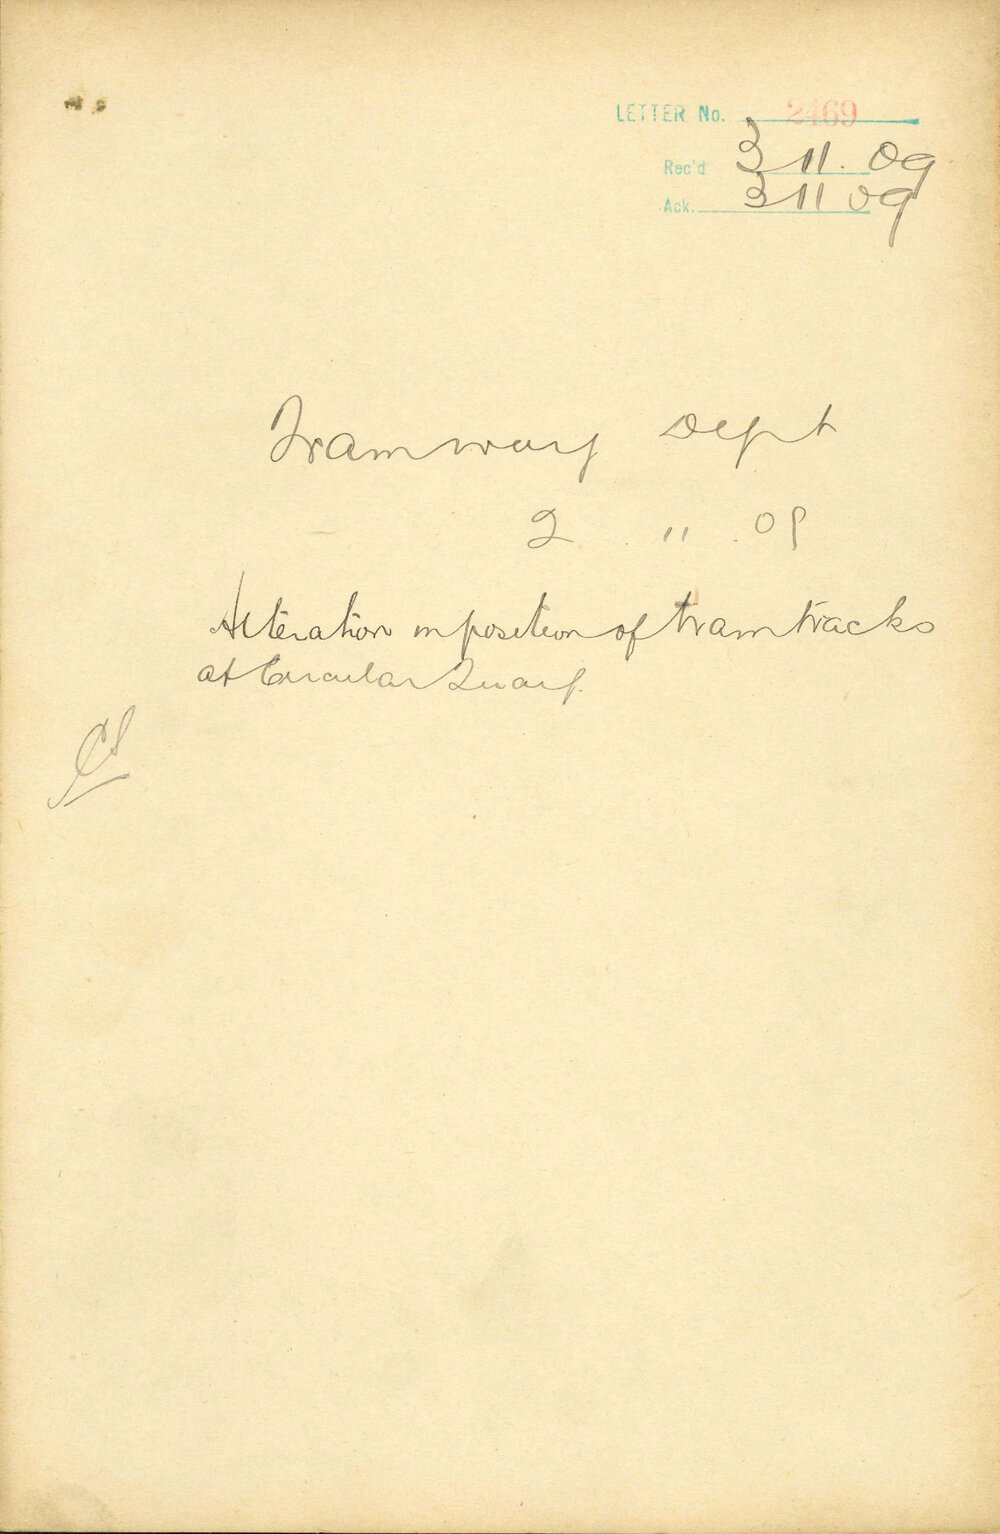 LETTER No. 2469
Rec'd 3 11. 09
Ack. 3 11 09
Tramway Dept
2 . 11 . 09
Alteration in position of tram tracks
at Circular Quay.